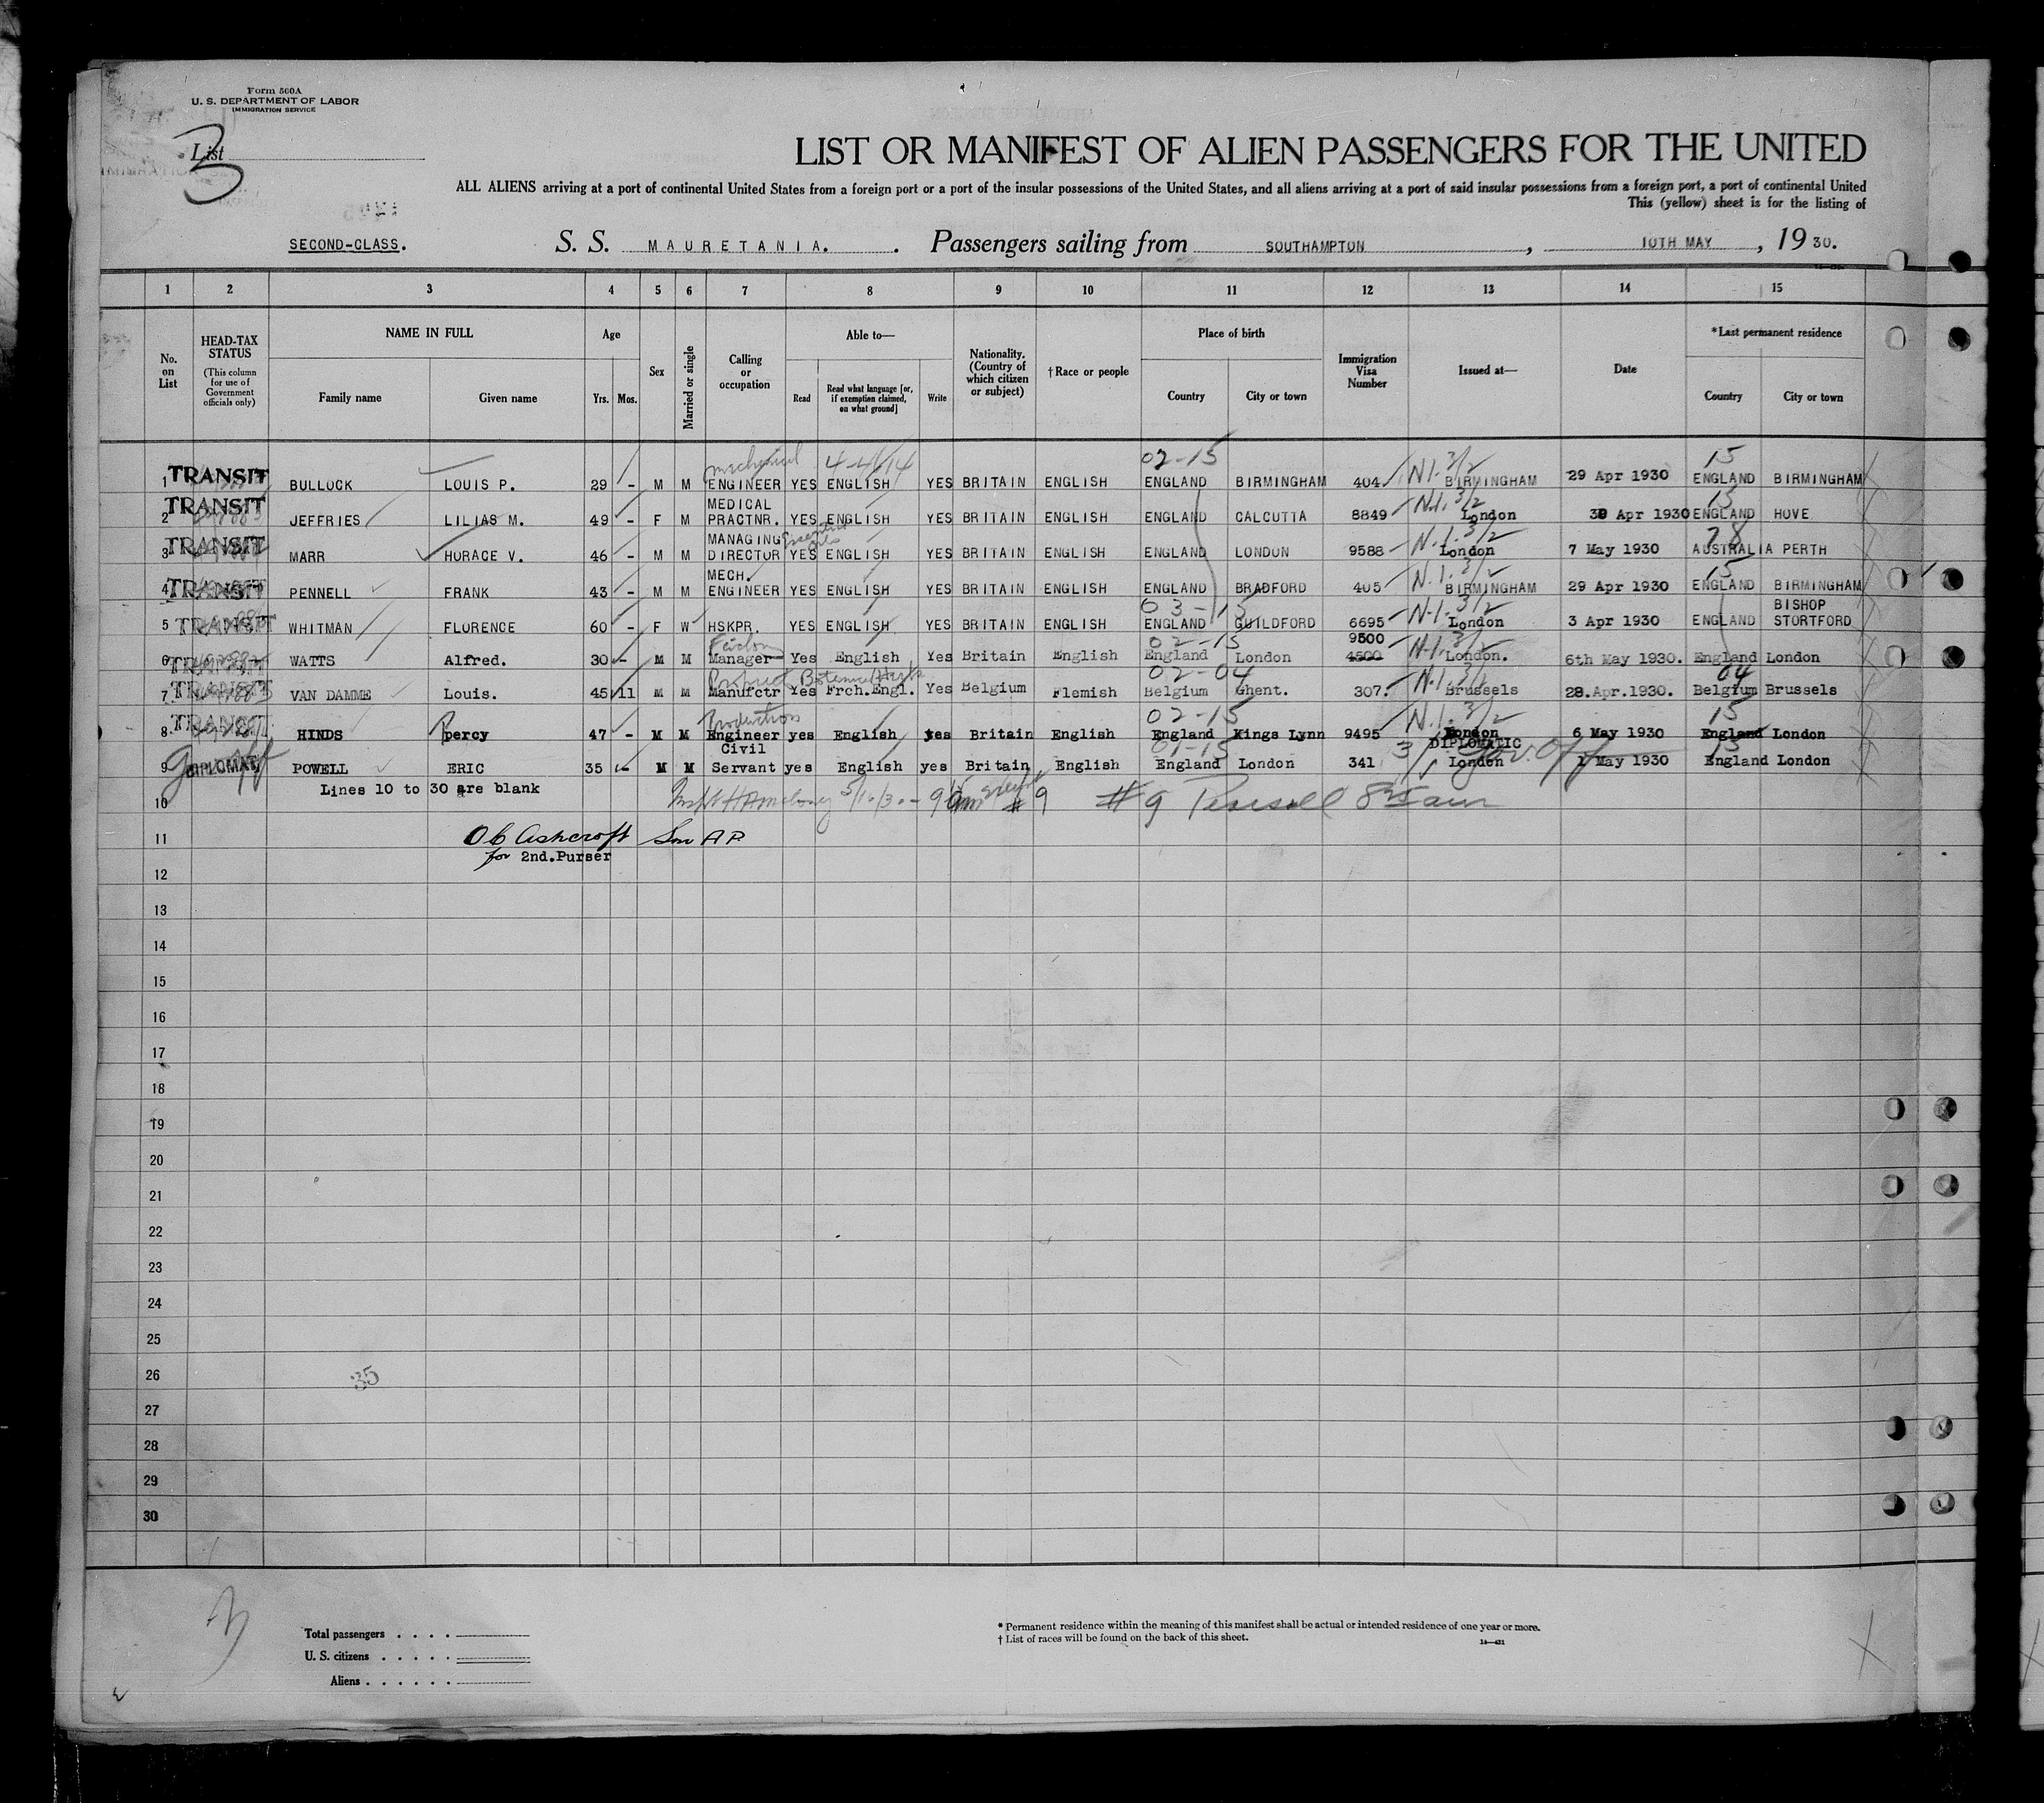 Form 500A
U. S. DEPARTMENT OF LABOR
IMMIGRATION SERVICE
List
3
LIST OR MANIFEST OF ALIEN PASSENGERS FOR THE UNITED
ALL ALIENS arriving at a port of continental United States from a foreign port or a port of the insular possessions of the United States, and all aliens arriving at a port of said insular possessions from a foreign port, a port of continental United
This (yellow) sheet is for the listing of
SECOND-CLASS. S. S. MAURETANIA. Passengers sailing from SOUTHAMPTON, 10TH MAY, 1930.
1 2 3 4 5 6 7 8 9 10 11 12 13 14 15
No. on List
HEAD-TAX STATUS (This column for use of Government officials only)
NAME IN FULL
Family name Given name
Age
Yrs. Mos.
Sex
Married or single
Calling or occupation
Able to—
Read Read what language [or, if exemption claimed, on what ground] Write
Nationality. (Country of which citizen or subject)
†Race or people
Place of birth
Country City or town
Immigration Visa Number
Issued at—
Date
*Last permanent residence
Country City or town
mechanical 02-15 15
1 TRANSIT BULLOCK LOUIS P. 29 - M M ENGINEER YES ENGLISH YES BRITAIN ENGLISH ENGLAND BIRMINGHAM 404 N.I. 3/2 BIRMINGHAM 29 Apr 1930 ENGLAND BIRMINGHAM
2 TRANSIT JEFFRIES LILIAS M. 49 - F M MEDICAL PRACTNR. YES ENGLISH YES BRITAIN ENGLISH ENGLAND CALCUTTA 8849 N.I. 3/2 London 30 Apr 1930 15 ENGLAND HOVE
3 TRANSIT MARR HORACE V. 46 - M M MANAGING DIRECTOR YES ENGLISH YES BRITAIN ENGLISH ENGLAND LONDON 9588 N.I. 3/2 London 7 May 1930 AUSTRALIA PERTH
4 TRANSIT PENNELL FRANK 43 - M M MECH. ENGINEER YES ENGLISH YES BRITAIN ENGLISH ENGLAND BRADFORD 405 N.I. 3/2 BIRMINGHAM 29 Apr 1930 15 ENGLAND BIRMINGHAM
5 TRANSIT WHITMAN FLORENCE 60 - F W HSKPR. YES ENGLISH YES BRITAIN ENGLISH 03-15 ENGLAND GUILDFORD 6695 N.I. 3/2 London 3 Apr 1930 ENGLAND BISHOP STORTFORD
6 TRANSIT WATTS Alfred. 30 - M M Manager Yes English Yes Britain English 02-15 England London 9500 4500 N.I. 3/2 London. 6th May 1930. England London
7 TRANSIT VAN DAMME Louis. 45 11 M M Manufctr Yes Frch.Engl. Yes Belgium Flemish 02-04 Belgium Ghent. 307. N.I. 3/2 Brussels 28.Apr.1930. 04 Belgium Brussels
8 TRANSIT HINDS percy 47 - M M Production Engineer yes English yes Britain English 02-15 England Kings Lynn 9495 N.I. 3/2 London 6 May 1930 15 England London
9 DIPLOMAT POWELL ERIC 35 - M M Civil Servant yes English yes Britain English 01-15 England London 341 3 DIPLOMATIC London Gov. Off 1 May 1930 15 England London
Lines 10 to 30 are blank
10
11
O C Ashcroft
for 2nd.Purser
12
13
14
15
16
17
18
19
20
21
22
23
24
25
26
35
27
28
29
30
3
Total passengers
U. S. citizens
Aliens
* Permanent residence within the meaning of this manifest shall be actual or intended residence of one year or more.
† List of races will be found on the back of this sheet.